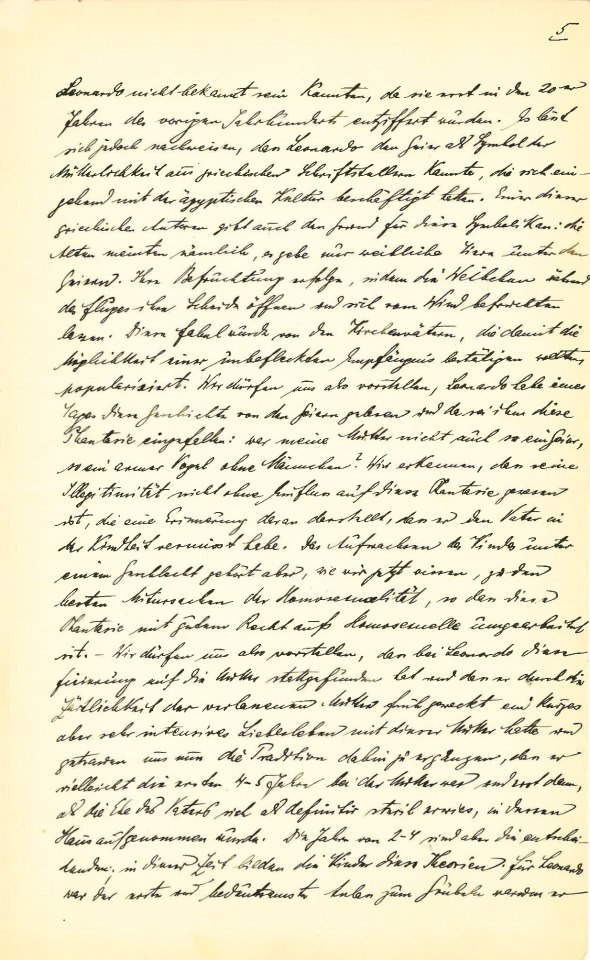 5
Leonardo nicht bekannt sein konnten, da sie erst in den 20er
Jahren des vorigen Jahrhunderts entziffert wurden. Es läst
sich jedoch nachweisen, dass Leonardo den Geier als Symbol der
Mütterlichkeit aus griechischen Schriftstellern kannte, die sich ein-
gehend mit der ägyptischen Kultur beschäftigt haben. Einer dieser
griechischen Autoren gibt auch den Grund für diese Symbolik an: die
Alten meinten nämlich, es gebe nur weibliche Tiere unter den
Geiern. Ihre Befruchtung erfolge, indem die Weibchen während
des Fluges ihre Scheide öffnen und sich vom Wind befruchten
lassen. Diese Fabel wurde von den Kirchenvätern, die damit die
Möglichkeit einer unbefleckten Empfängnis bestätigen wollten
popularisiert. Wir dürfen uns also vorstellen, Leonardo habe eines
Tages diese Geschichte von den Geiern gelesen und da sei ihm diese
Phantasie eingefallen: war meine Mutter nicht auch so ein Geier,
so ein armer Vogel ohne Männchen? Wir erkennen, dass seine
Illegitimität nicht ohne Einfluss auf diese Phantasie gewesen
ist, die eine Erinnerung daran darstellt, dass er den Vater in
der Kindheit vermisst habe. Das Aufwachsen des Kindes unter
einem Geschlecht gehört aber, wie wir jetzt wissen, zu den
besten Mitursachen der Homosexualität, so dass diese
Phantasie mit gutem Recht aufs Homosexuelle umgearbeitet
ist. – Wir dürfen uns also vorstellen, dass bei Leonardo diese
Fixierung auf die Mutter stattgefunden hat und dass er durch die
Zärtlichkeit der verlassenen Mutter früh geweckt ein kurzes
aber sehr intensives Liebesleben mit dieser Mutter hatte und
getrauen uns nun die Tradition dahin zu ergänzen, dass er
vielleicht die ersten 4-5 Jahre bei der Mutter war und erst dann,
als die Ehe des Vaters sich als definitiv steril erwies, in dessen
Haus aufgenommen wurde. Die Jahre von 2-4 sind aber die entschei-
denden; in dieser Zeit bilden die Kinder diese Theorien. Für Leonardo
war der erste und bedeutsamste Anlass zum Grübeln warum er